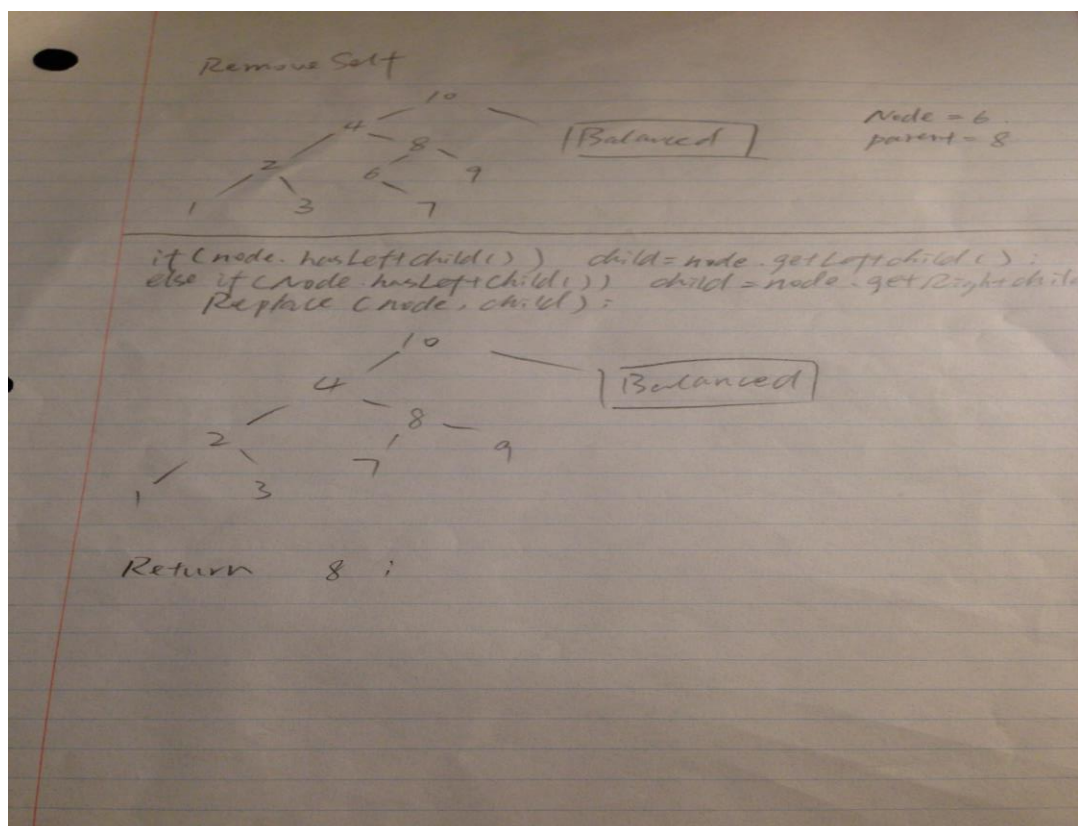 Remove Self
10
4 Balanced Node = 6
8 parent = 8
2 6 9
1 3 7
if (node.hasLeftchild()) child = node.getLeftchild();
else if (Node.hasLeftchild()) child = node.getRightchild
Replace (node, child);
10
4 Balanced
8
2 7 9
1 3
Return 8 ;